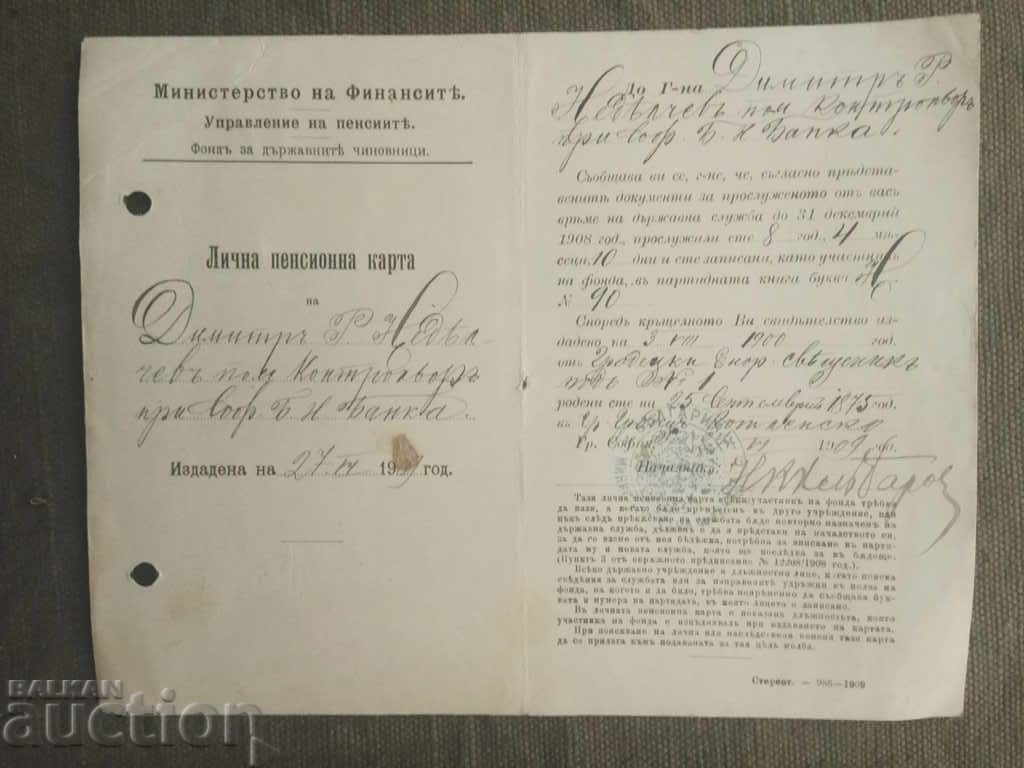 Министерство на Финанситѣ.
Управление на пенсиитѣ.
Фондъ за държавнитѣ чиновници.
Лична пенсионна карта
на
Димитръ Р. Недѣл
чевъ пом Контрольоръ
при Соф. Б. Н. Банка.
Издадена на 27 IV 1909 год.
До Г-на Димитръ Р.
Недѣлчевъ пом Контрольоръ
при Соф. Б. Н. Банка.
Съобщава ви се, г-не, че, съгласно прѣдста-
венитѣ документи за прослуженото отъ васъ
врѣме на държавна служба до 31 декемврий
1908 год., прослужили сте 8 год., 4 мѣ-
сеци, 10 дни и сте записани, като участникъ
на фонда, въ партидната книга буква Н
№ 90
Споредъ кръщелното Ви свидѣтелство из-
дадено на 3 VIII 1900 год.
отъ Градецки Енор. свѣщеникъ
подъ № 1
родени сте на 25 Септемврий 1875 год.
въ гр. Градецъ Котленско
Гр. София, VI 1909 год.
Началникъ:
Тази лична пенсионна карта всѣки участникъ на фонда трѣбва
да пази, а когато бѫде прѣмѣстен въ друго учрѣждение, или
пъкъ слѣдъ прѣкѫсване на службата бѫде повторно назначенъ на
държавна служба, длъженъ е да я прѣдстави на началството си,
за да се вземе отъ нея бѣлѣжка, потрѣбна за вписване въ парти-
дата му и новата служба, която ще послѣдва за въ бѫдеще.
(Пунктъ 3 отъ окрѫжното прѣдписание № 12208/1908 год.).
Всѣко държавно учрѣждение и длъжностно лице, когато поиска
свѣдѣния за службата или за направенитѣ удръжки въ полза на
фонда, на когото и да било, трѣбва непрѣменно да съобщава бук-
вата и нумера на партидата, въ която лицето е записано.
Въ личната пенсионна карта е показана длъжностьта, която
участника на фонда е изпълнявалъ при издаването на картата.
При поискване на лична или наслѣдствена пенсия тази карта
да се прилага къмъ подаваната за тая цѣль молба.
Стереот. — 986—1909
BALKAN
auction